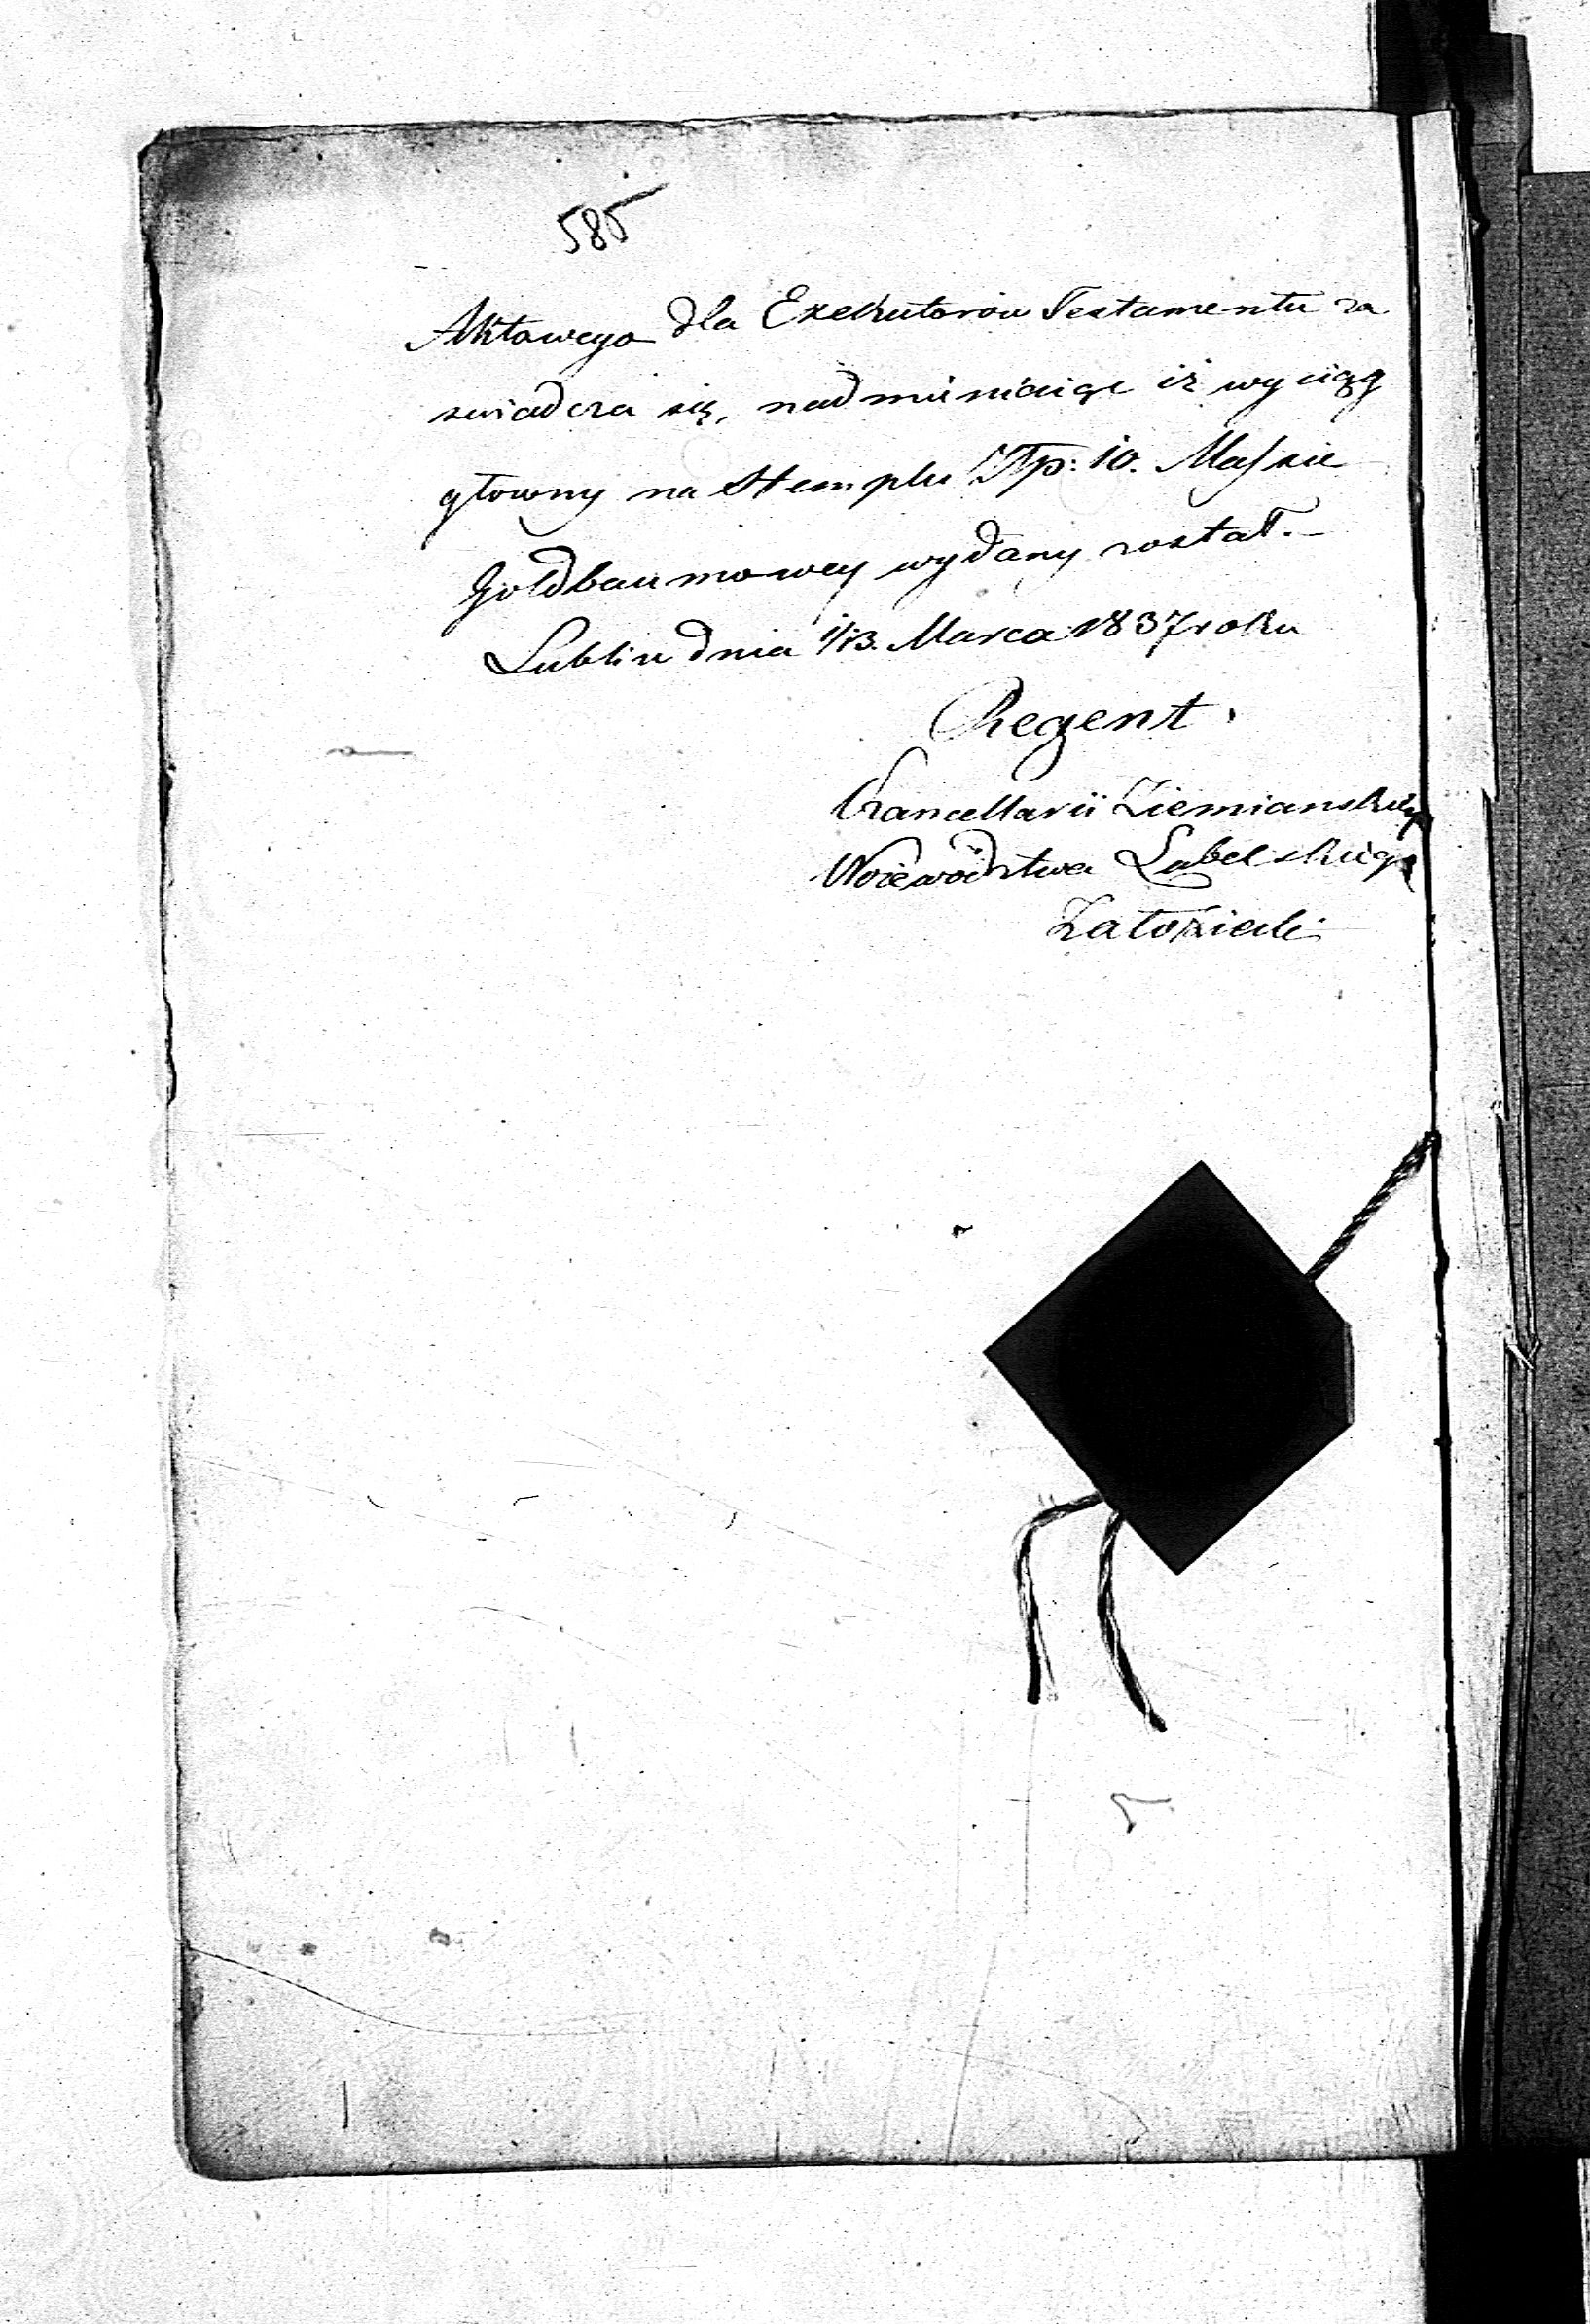 585
Aktowego dla Exekutorów Testamentu za
swiadcza się, nadmieniaiąc iż wyciąg
głowny na stemplu Złp: 10. Massie
Goldbaumowey wydany został. –
Lublin dnia 1/13. Marca 1837 roku
Regent
Kancellarii Ziemianskiey
Woiewództwa Lubelskiego
5